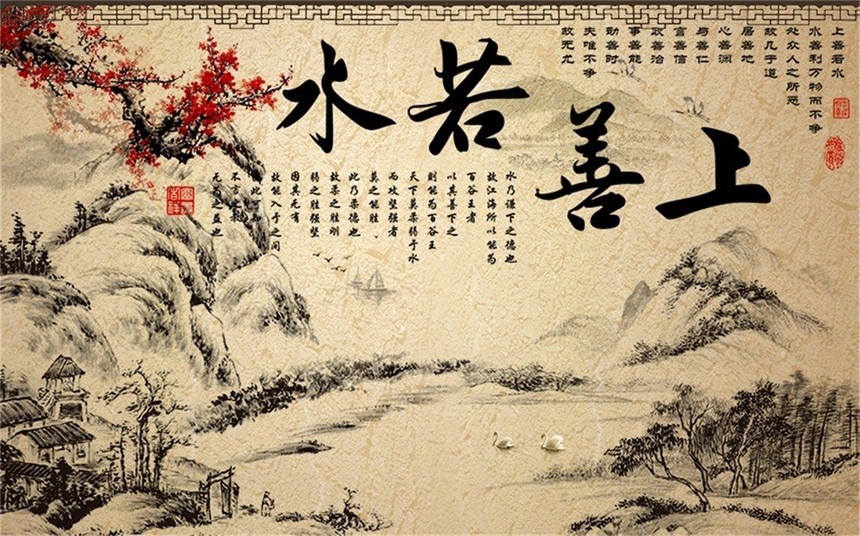 上善若水
上善若水
水善利万物而不争
处众人之所恶
故几于道
居善地
心善渊
与善仁
言善信
政善治
事善能
动善时
夫唯不争
故无尤
水乃谦下之德也
故江海所以能为
百谷王者
以其善下之
则能为百谷王
天下莫柔弱于水
而攻坚强者
莫之能胜
此乃柔德也
故柔之胜刚
弱之胜强坚
因其无有
故能入于之间